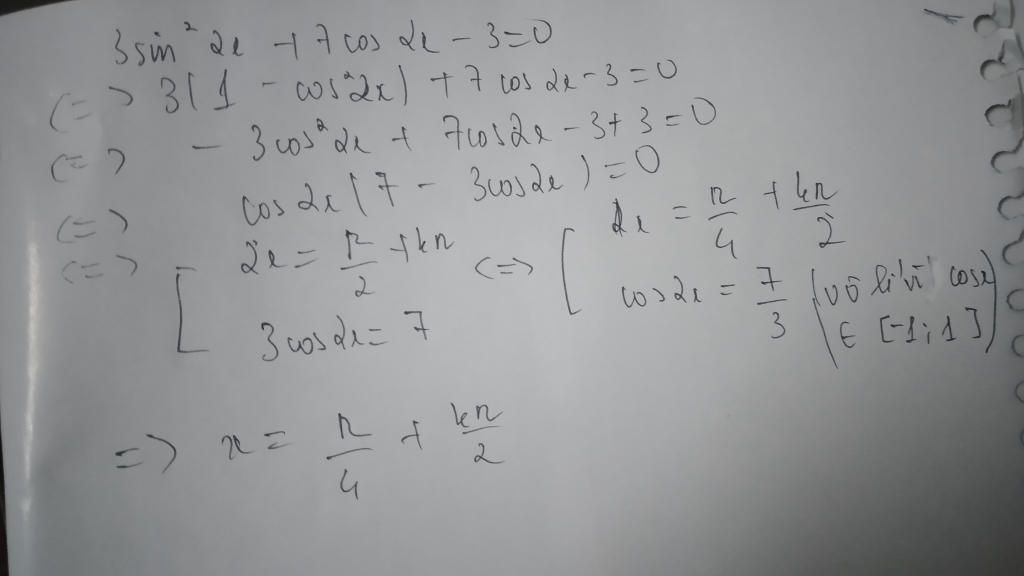 3sin² 2x + 7cos 2x - 3 = 0
(=) 3(1 - cos²2x) + 7cos 2x - 3 = 0
(=) - 3cos²2x + 7cos2x - 3 + 3 = 0
(=) cos2x(7 - 3cos2x) = 0
(=) [ 2x = π/2 + kπ (=) [ x = π/4 + kπ/2
3cos2x = 7 cos2x = 7/3 (vô lí vì cosx ∈ [-1; 1])
=) x = π/4 + kπ/2